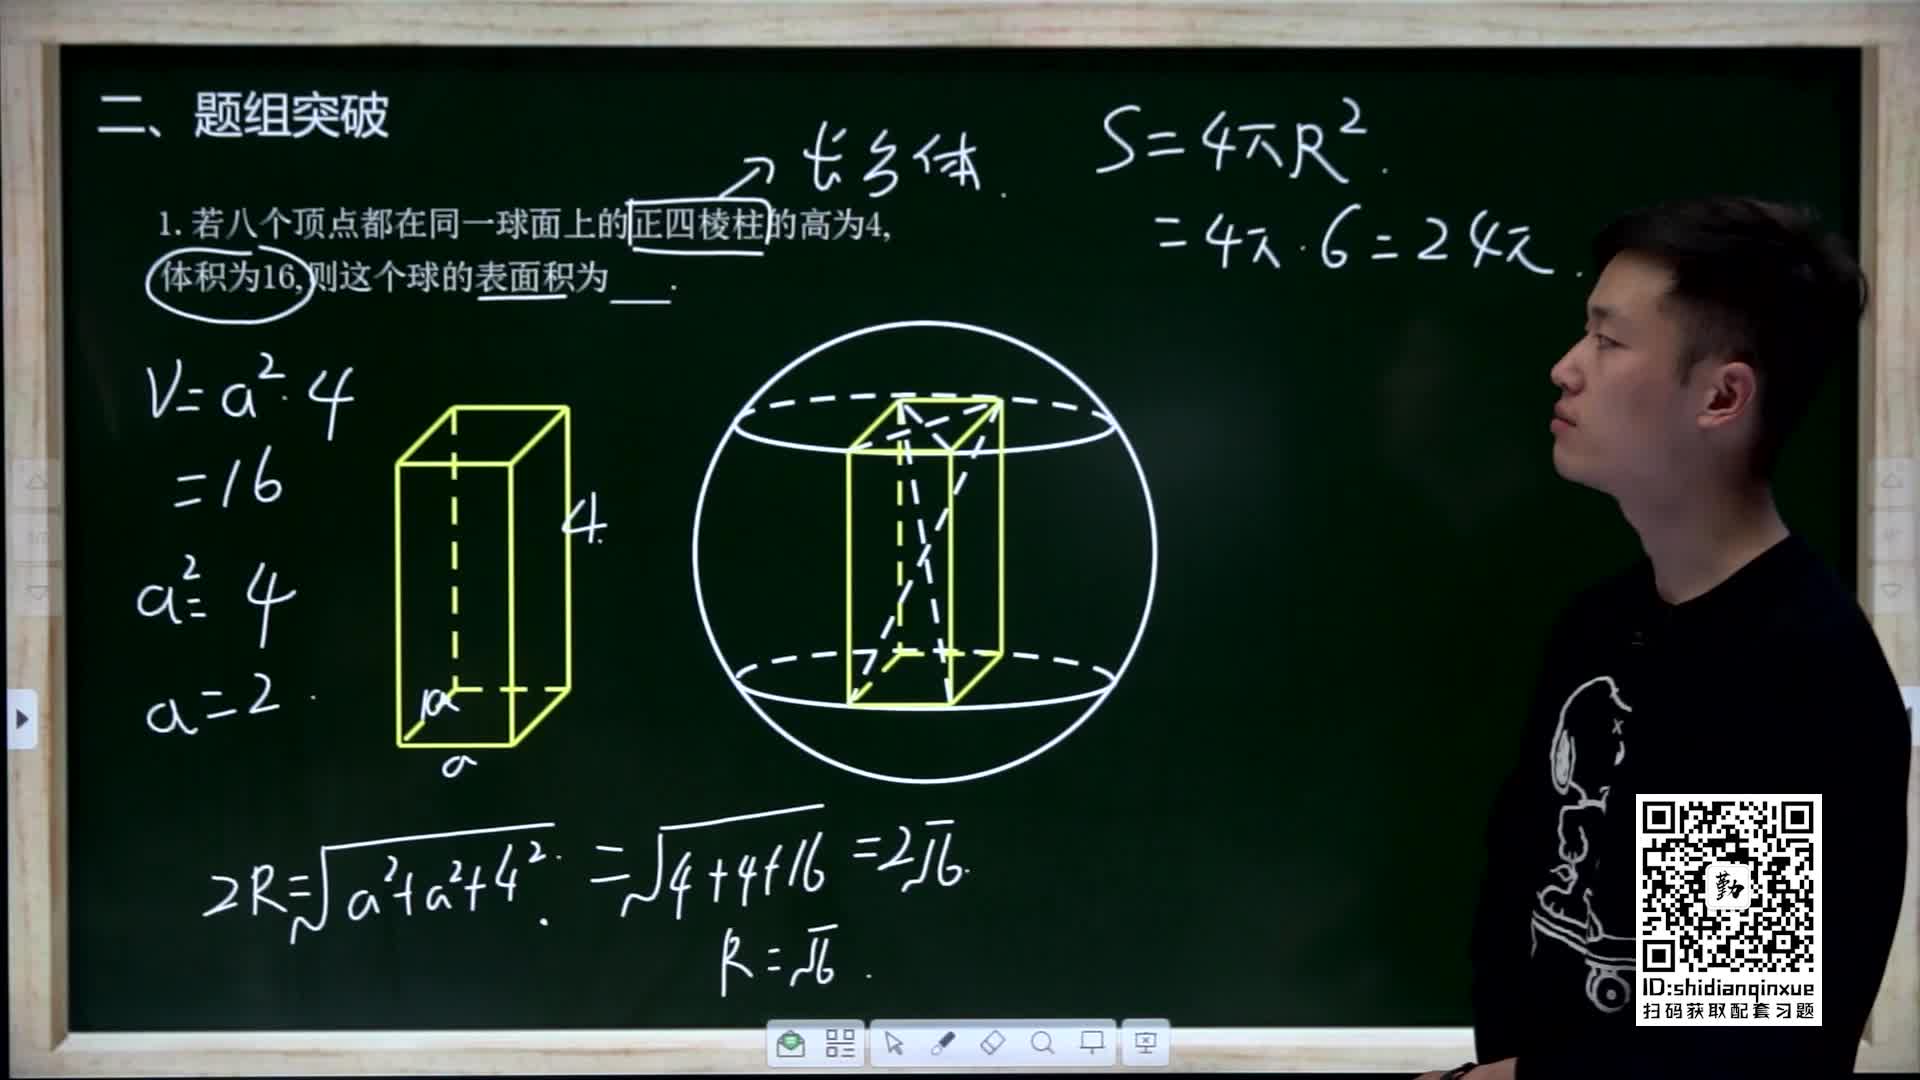 二、题组突破
长方体.
1. 若八个顶点都在同一球面上的正四棱柱的高为4,
体积为16,则这个球的表面积为___.
S=4πR².
=4π·6=24π.
V=a²·4
=16
a²=4
a=2.
4.
a
a
2R=√a²+a²+4². =√4+4+16 =2√6.
R=√6.
勤
ID:shidianqinxue
扫码获取配套习题